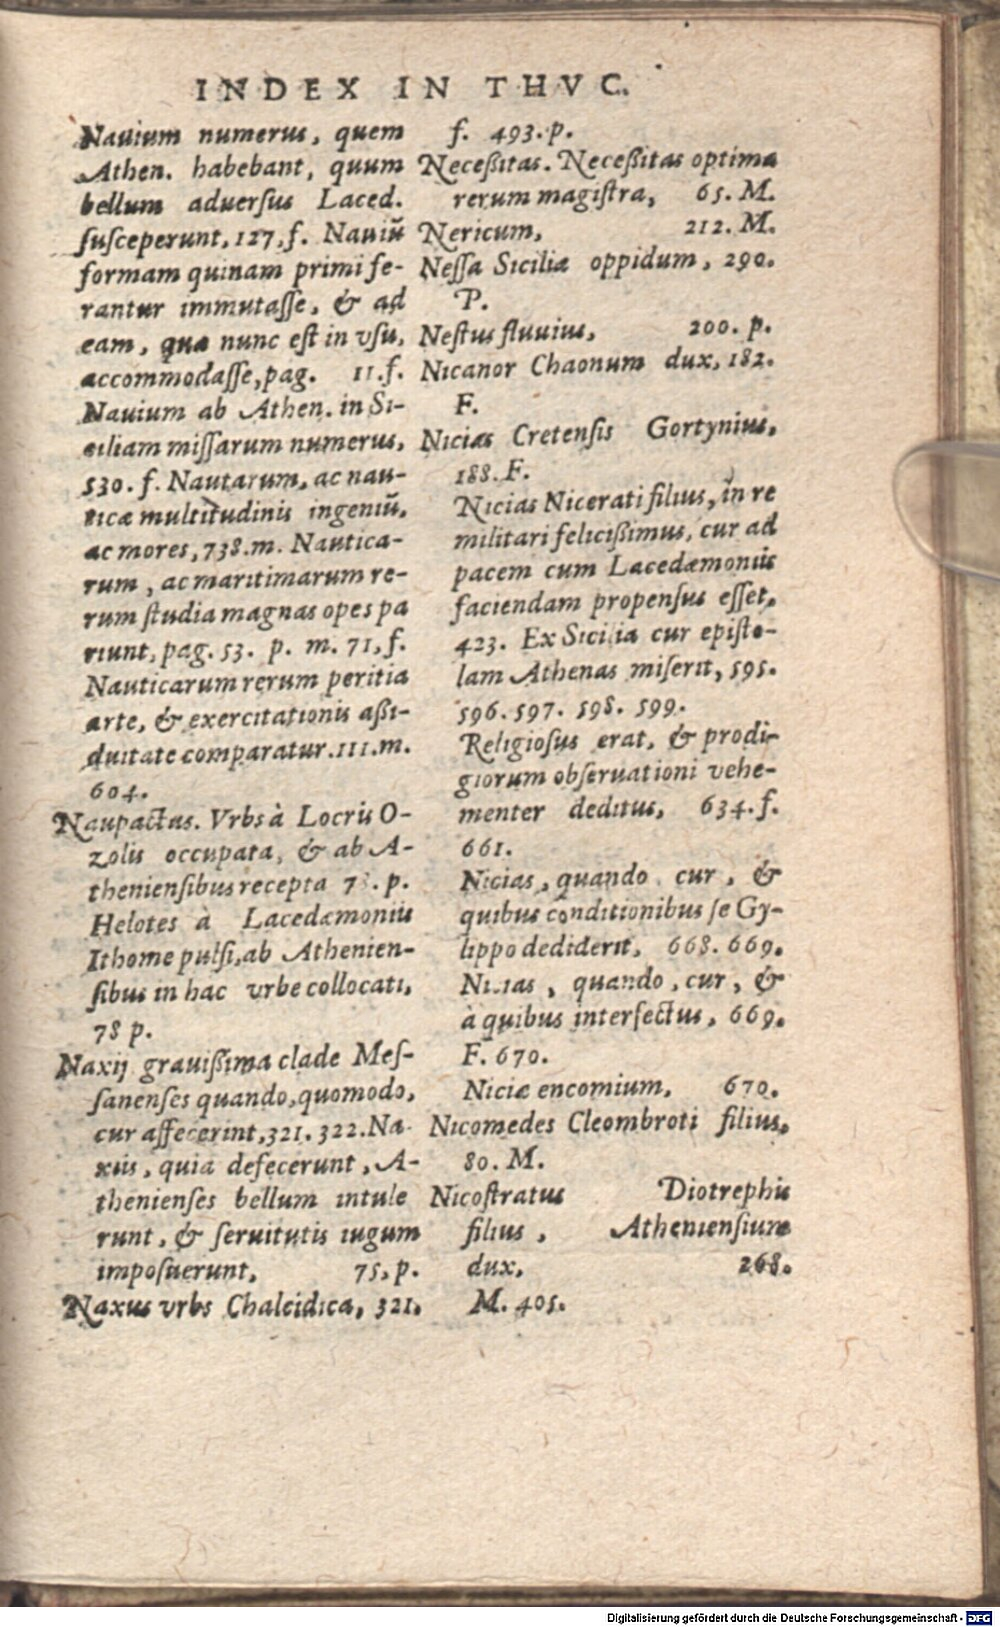 INDEX IN THVC.
Nauium numerus, quem
Athen. habebant, quum
bellum aduersus Laced.
susceperunt, 127, f. Nauiũ
formam quinam primi fe-
rantur immutasse, & ad
eam, quæ nunc est in vsu,
accommodasse, pag. 11. f.
Nauium ab Athen. in Si-
ciliam missarum numerus,
530. f. Nautarum, ac nau-
ticæ multitudinis ingeniũ,
ac mores, 738. m. Nautica-
rum, ac maritimarum re-
rum studia magnas opes pa
riunt, pag. 53. p. m. 71, f.
Nauticarum rerum peritia
arte, & exercitationis aßi-
duitate comparatur. 111. m.
604.
Naupactus. Vrbs à Locris O-
zolis occupata, & ab A-
theniensibus recepta p.
Helotes à Lacedæmoniis
Ithome pulsi, ab Athenien-
sibus in hac vrbe collocati,
78 p.
Naxij grauißima clade Mes-
sanenses quando, quomodo,
cur affecerint, 321. 322. Na-
xiis, quia defecerunt, A-
thenienses bellum intule
runt, & seruitutis iugum
imposuerunt, 75, p.
Naxus vrbs Chalcidica, 321.
f. 493. p.
Neceßitas. Neceßitas optima
rerum magistra, 65. M.
Nericum, 212. M.
Nessa Siciliæ oppidum, 290.
P.
Nestus fluuius, 200. p.
Nicanor Chaonum dux, 182.
F.
Nicias Cretensis Gortynius,
188. F.
Nicias Nicerati filius, in re
militari felicißimus, cur ad
pacem cum Lacedæmoniis
faciendam propensus esset,
423. Ex Sicilia cur episto-
lam Athenas miserit, 595.
596. 597. 598. 599.
Religiosus erat, & prodi-
giorum obseruationi vehe-
menter deditus, 634. f.
661.
Nicias, quando cur, &
quibus conditionibus se Gy-
lippo dediderit, 668. 669.
Nicias, quando, cur, &
à quibus interfectus, 669.
F. 670.
Niciæ encomium, 670.
Nicomedes Cleombroti filius,
80. M.
Nicostratus Diotrephis
filius, Atheniensium
dux, 268.
M. 405.
Digitalisierung gefördert durch die Deutsche Forschungsgemeinschaft - DFG